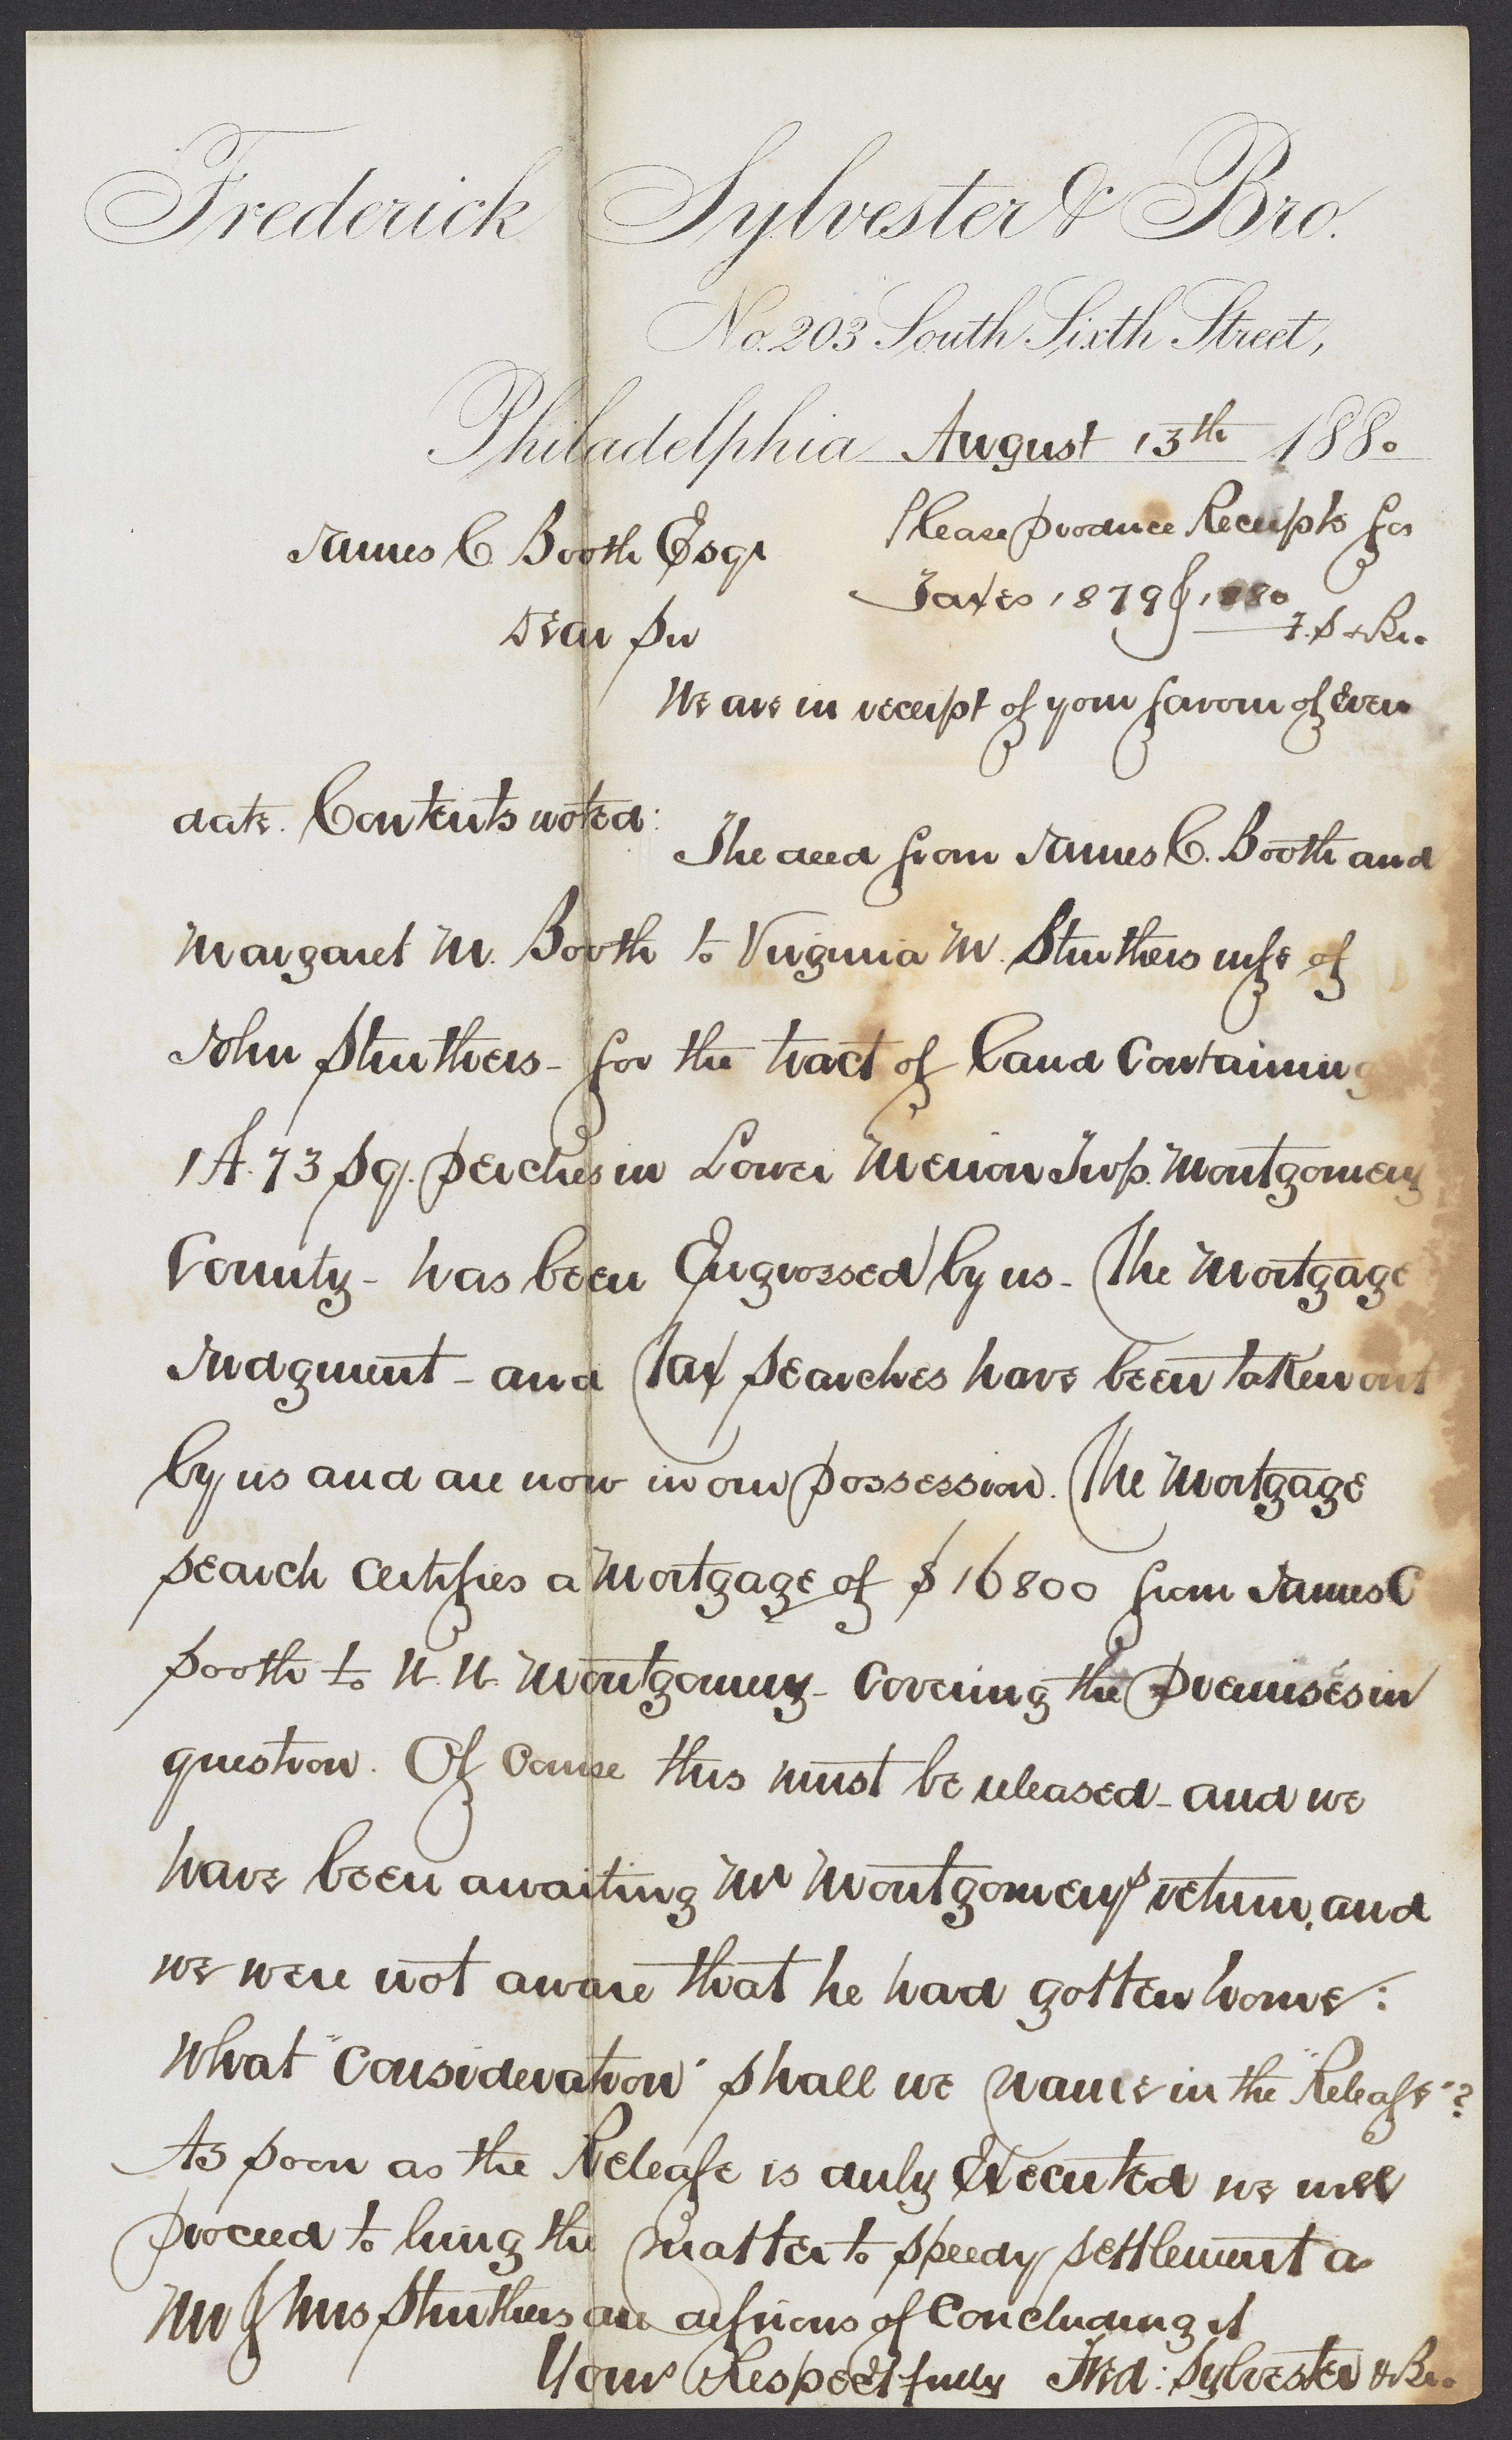 Frederick Sylvester & Bro.
No. 203 South Sixth Street,
Philadelphia August 13th 1880
Please produce Receipts for
Taxes 1879 & 1880
F. S & Bro.
James C. Booth Esqr
Dear Sir
We are in receipt of your favour of even
date. Contents noted:
The deed from James C. Booth and
Margaret M. Booth to Virginia M. Struthers wife of
John Struthers - for the tract of land Containing
1 A. 73 Sq. perches in Lower Merion Twp. Montgomery
County - has been Engrossed by us - The Mortgage
Judgment - and Tax Searches have been taken out
by us and are now in our possession. The Mortgage
Search Certifies a Mortgage of $16800 from James C
Booth to N. N. Montgomery - Covering the premises in
question. Of Course this must be released - and we
have been awaiting Mr Montgomery's return, and
we were not aware that he had gotten home:
What "Consideration" shall we name in the "Release"?
As soon as the Release is duly Executed we will
proceed to bring the matter to speedy settlement as
Mr & Mrs Struthers are desirous of Concluding it
Yours Respectfully Fred: Sylvester & Bro.